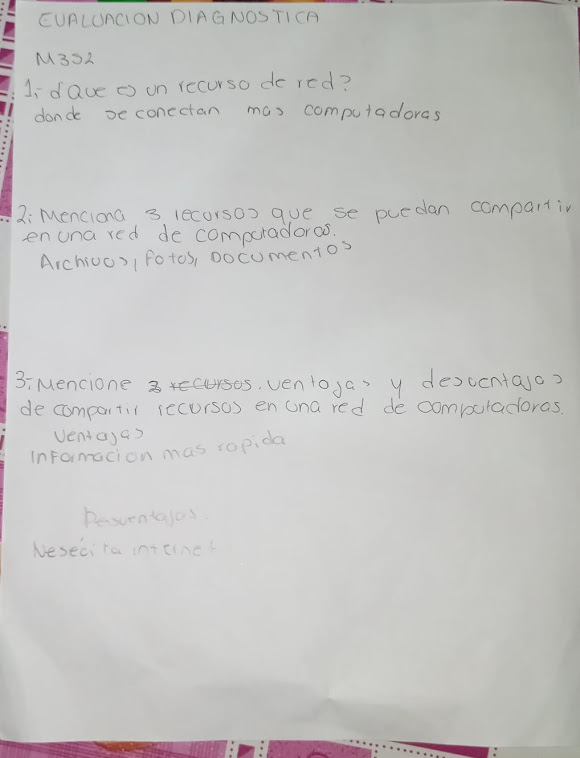 EVALUACION DIAGNOSTICA
M3S2
1.- ¿Que es un recurso de red?
donde se conectan mas computadoras
2.- Menciona 3 recursos que se puedan compartir
en una red de computadoras.
Archivos, fotos, Documentos
3.- Mencione 3 recursos. ventajas y desventajas
de compartir recursos en una red de computadoras.
Ventajas
Informacion mas rapida
Desventajas.
Nesecita internet